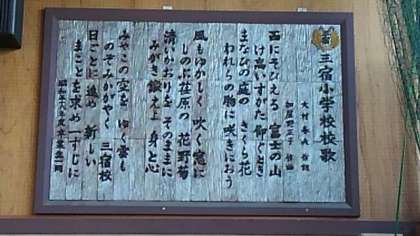 三宿小学校校歌
大村 作詞
加屋野正子 作曲
西にそびえる 富士の山
け高いすがた 仰ぐとき
まなびの庭の さくら花
われらの胸に 咲きにおう
風もゆかしく 吹く窓に
しのぶ荏原の 花野菊
清いかおりを そのままに
みがき鍛えよ 身と心
みやこの空を ゆく雲も
のぞみかがやく 三宿校
日ごとに進め 新しい
まことを求め 一すじに
昭和 年度卒業生一同